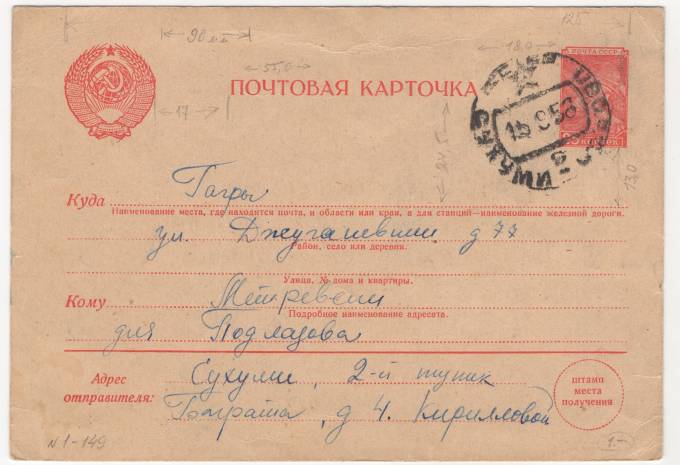 125
90 мм
18,0
55,0
ПОЧТА СССР
ПОЧТОВАЯ КАРТОЧКА
17
15 9 53
24,5
13,0
Куда Гагры
Наименование места, где находится почта, и области или края, а для станций—наименование железной дороги.
ул. Джугашвили д 77
Район, село или деревня.
Улица, № дома и квартиры.
Кому Метревели
Подробное наименование адресата.
для Подлазова
Адрес отправителя: Сухуми, 2-й тупик
Баграта, д 4. Кирилловой
штамп
места
получения
N 1-149
1.-